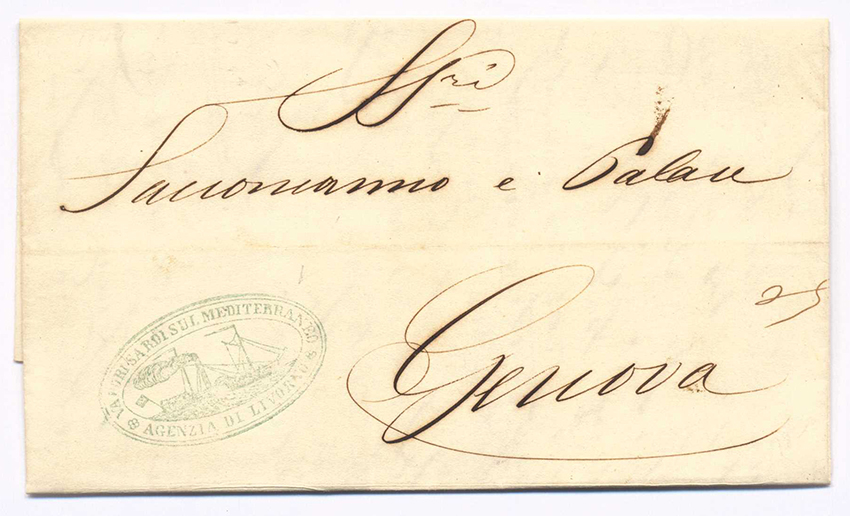 SSri
Sacconanno e Palau
Genova
VAPORI SARDI SUL MEDITERRANEO
AGENZIA DI LIVORNO